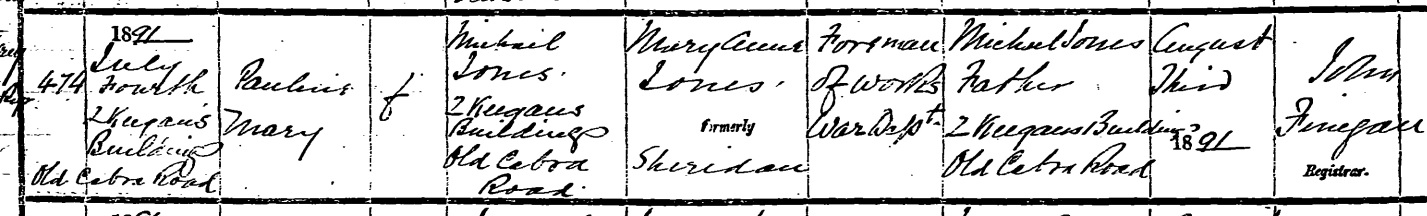 474
1891
July
Fourth
2 Keegans
Buildings
Old Cabra Road
Pauline
Mary
f
Michael
Jones.
2 Keegans
Buildings
Old Cabra
Road.
Mary Anne
Jones.
formerly
Sheridan
Foreman
of Works
War Dept.
Michael Jones
Father
2 Keegans Buildings
Old Cabra Road
August
Third
1891
John
Finegan
Registrar.